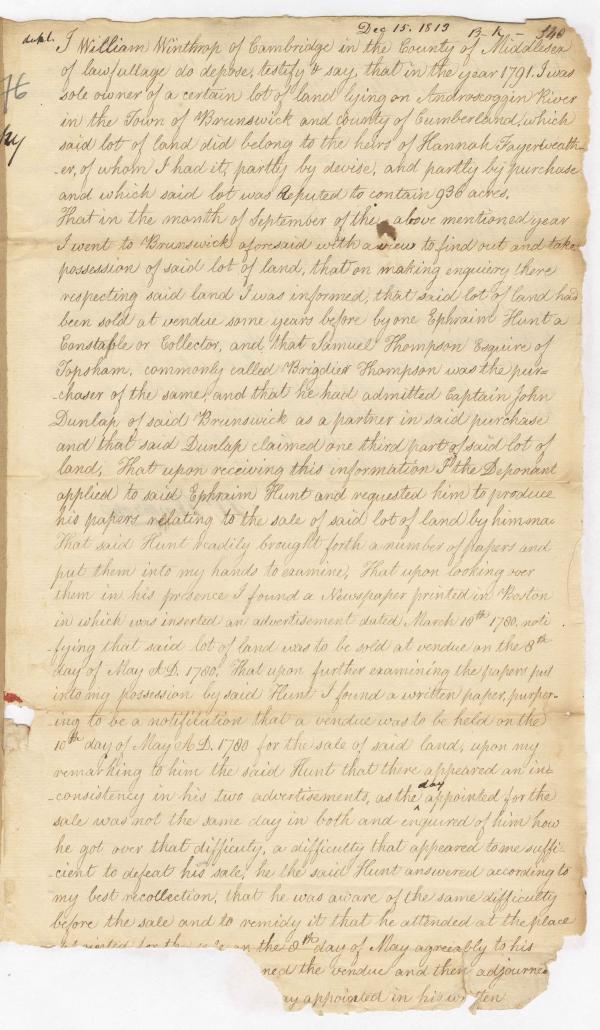 Dec 15. 1813 B-k- 140
dupl.
I William Winthrop of Cambridge in the County of Middlesex
of lawfull age do depose, testify & say, that in the year 1791. I was
sole owner of a certain lot of land lying on Androscoggin River
in the Town of Brunswick and county of Cumberland, which
said lot of land did belong to the heirs of Hannah Fayerweath-
-er, of whom I had it, partly by devise, and partly by purchase
and which said lot was reputed to contain 936 acres.
That in the month of September of the above mentioned year
I went to Brunswick aforesaid with a view to find out and take
possession of said lot of land, that on making enquiery there
respecting said land I was informed, that said lot of land had
been sold at vendue some years before by one Ephraim Hunt a
Constable or Collector, and that Samuel Thompson Esquire of
Topsham, commonly called Brigdier Thompson was the pur-
-chaser of the same, and that he had admitted Captain John
Dunlap of said Brunswick as a partner in said purchase
and that said Dunlap claimed one third part of said lot of
land, That upon receiving this information I the Deponant
applied to said Ephraim Hunt and requested him to produce
his papers relating to the sale of said lot of land by him ma
That said Hunt readily brought forth a number of papers and
put them into my hands to examine, That upon looking over
them in his presence I found a Newspaper printed in Boston
in which was inserted an advertisement dated March 10th 1780. noti
fying that said lot of land was to be sold at vendue on the 8th
day of May A.D. 1780, That upon further examining the papers put
into my possession by said Hunt I found a written paper, purpor-
ing to be a notification that a vendue was to be held on the
10th day of May A.D. 1780 for the sale of said land, upon my
remarking to him the said Hunt that there appeared an in-
-consistency in his two advertisements, as the day appointed for the
sale was not the same day in both and enquired of him how
he got over that difficulty, a difficulty that appeared to me suffi-
-cient to defeat his sale, he the said Hunt answered according to
my best recollection, that he was aware of the same difficulty
before the sale and to remidy it that he attended at the place
on the 8th day of May agreably to his
ned the vendue and then adjourned
ay appointed in his written